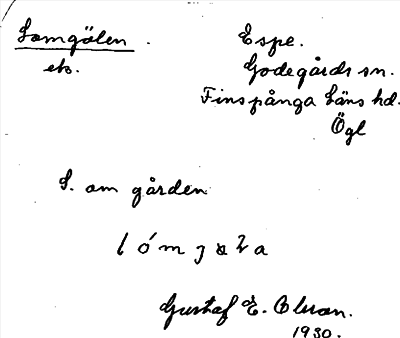 Lomgölen.
etc.
Espe.
Godegårds sn.
Finspånga Läns hd.
Ögl
S. om gården
Gustaf E. Olsson.
1930.